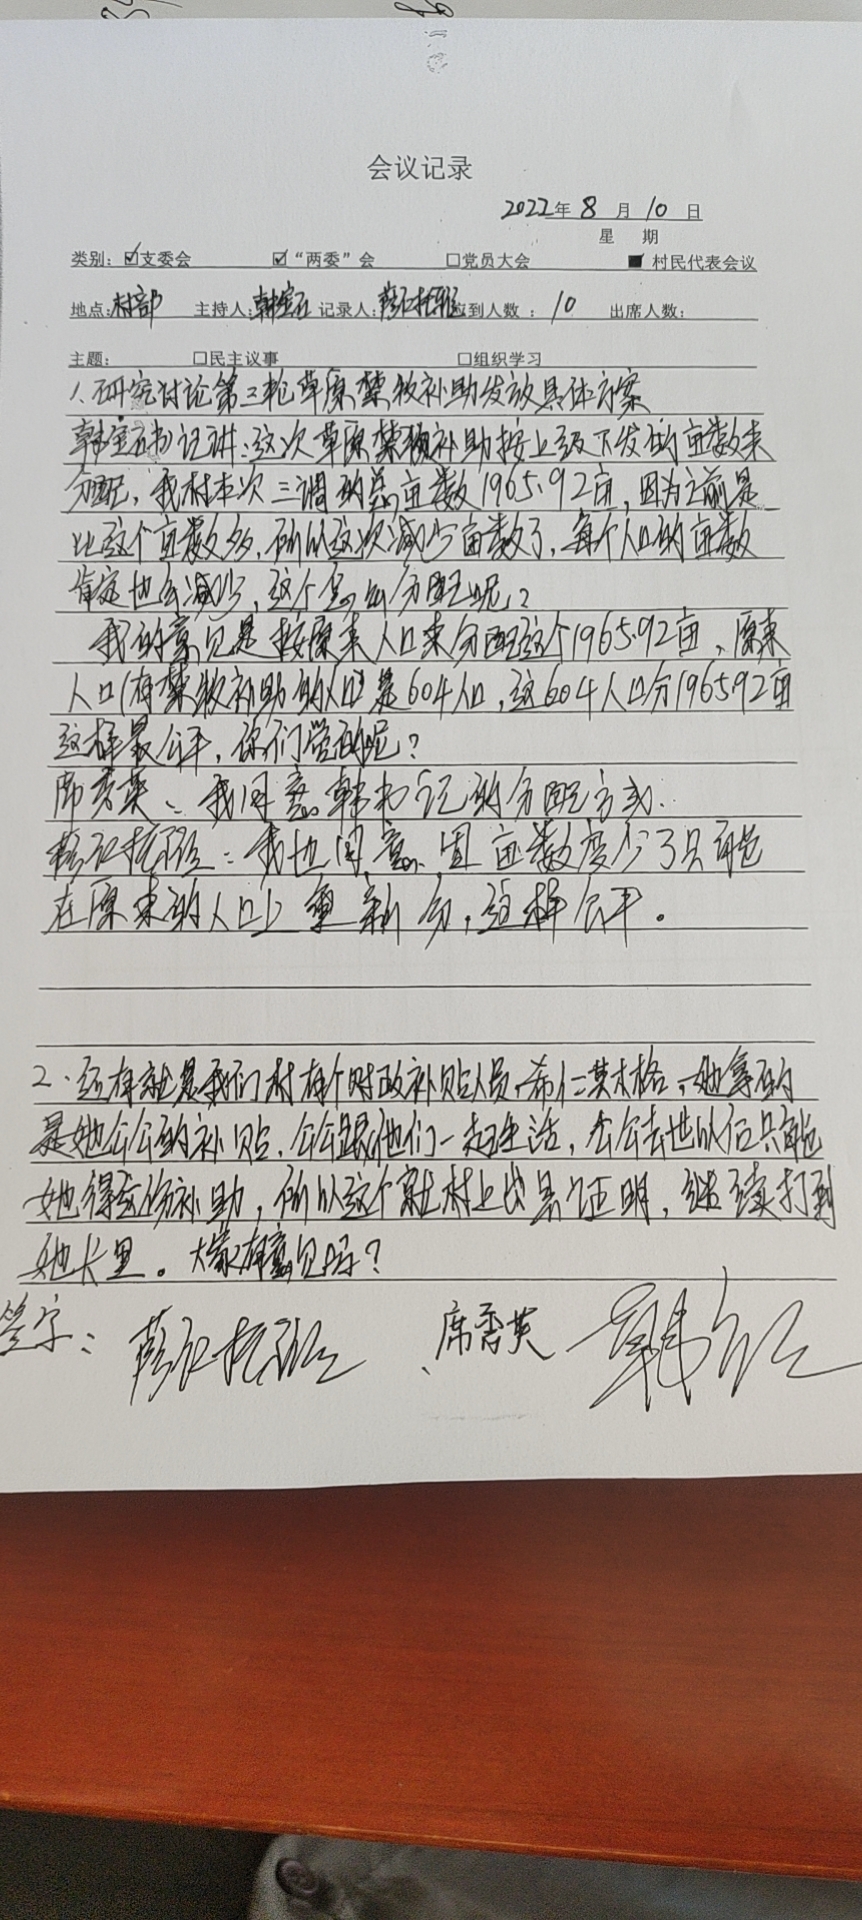 会议记录
2022年 8 月 10 日
星 期
类别：☑支委会 ☑“两委”会 □党员大会 ■村民代表会议
地点：村部 主持人：韩宝石 记录人： 应到人数：10 出席人数：
主题： □民主议事 □组织学习
1、研究讨论第三轮草原禁牧补助发放具体方案
韩宝石书记讲：这次草原禁牧补助按上级下发的亩数来
分配，我村本次三调的总亩数1965.92亩，因为之前是
比这个亩数多，所以这次减少亩数了，每个人口的亩数
肯定也会减少，这个怎么分配呢？
我的意见是按原来人口来分配这个1965.92亩、原来
人口(有禁牧补助的人口)是604人口，这604人口分1965.92亩
这样最公平，你们觉的呢？
席秀英：我同意韩书记的分配方式.
：我也同意，因亩数变少了只能
在原来的人口上重新分，这样公平。
2、还有就是我们村有个财政补贴人员，希仁其木格，她拿的
是她公公的补贴，公公跟他们一起生活，公公去世以后只能
她得这份补助，所以这个就村上出具证明，继续打到
她卡里。大家有意见吗？
签字： 席秀英 韩宝石